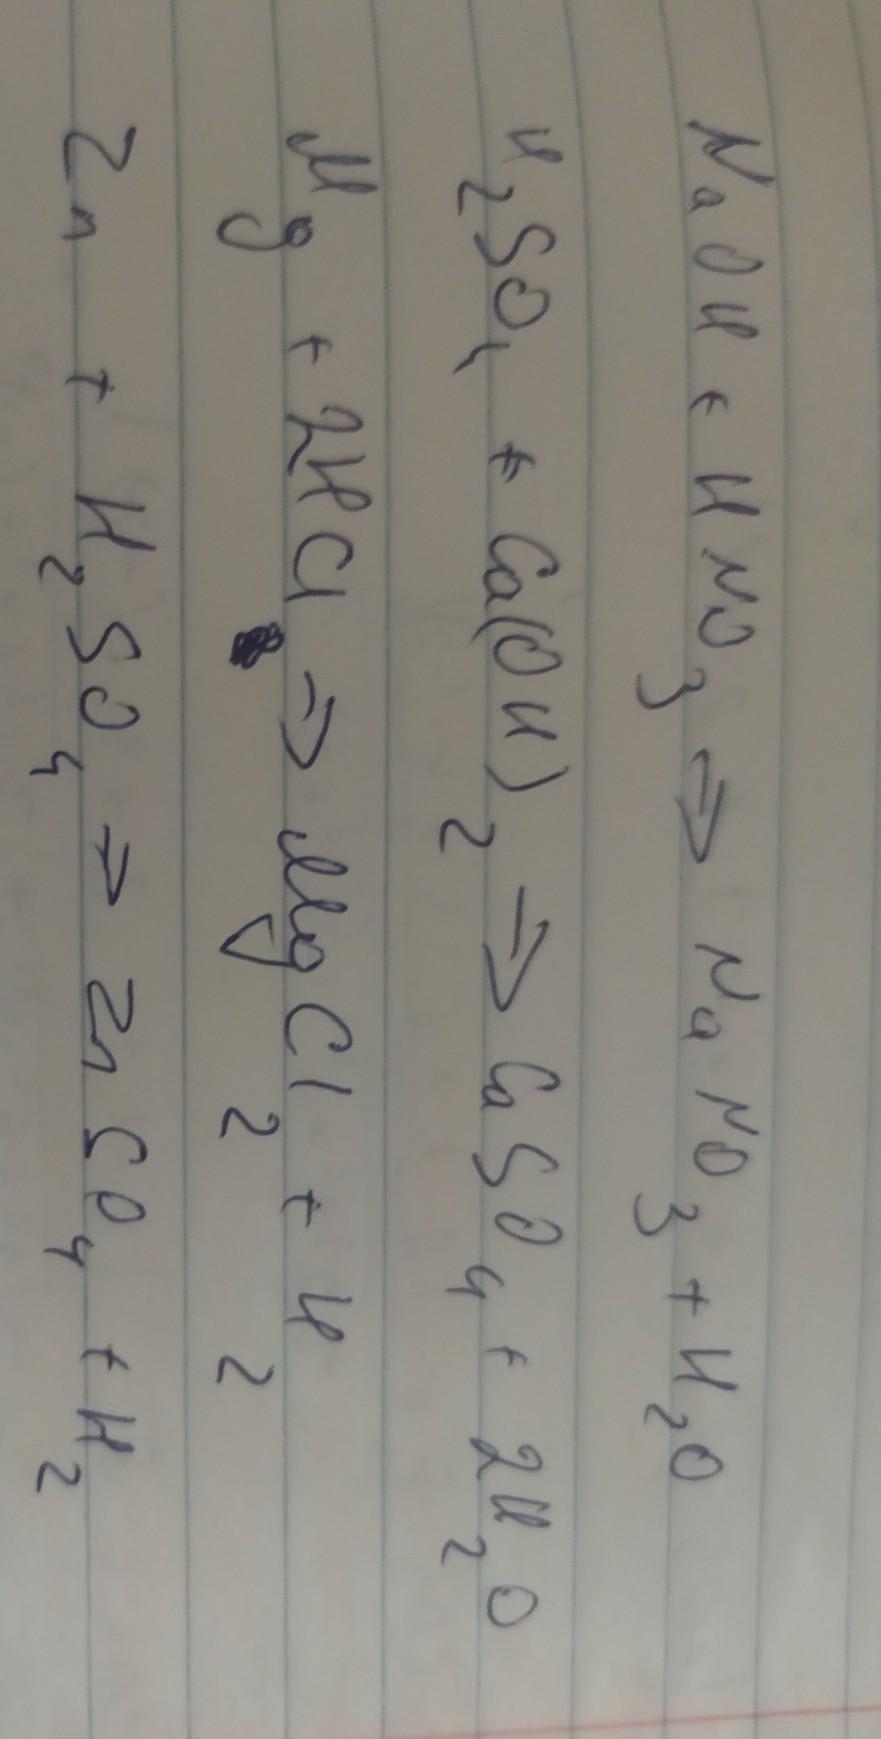 NaOH + HNO₃ ⇒ NaNO₃ + H₂O
H₂SO₄ + Ca(OH)₂ ⇒ CaSO₄ + 2H₂O
Mg + 2HCl ⇒ MgCl₂ + H₂
Zn + H₂SO₄ ⇒ ZnSO₄ + H₂